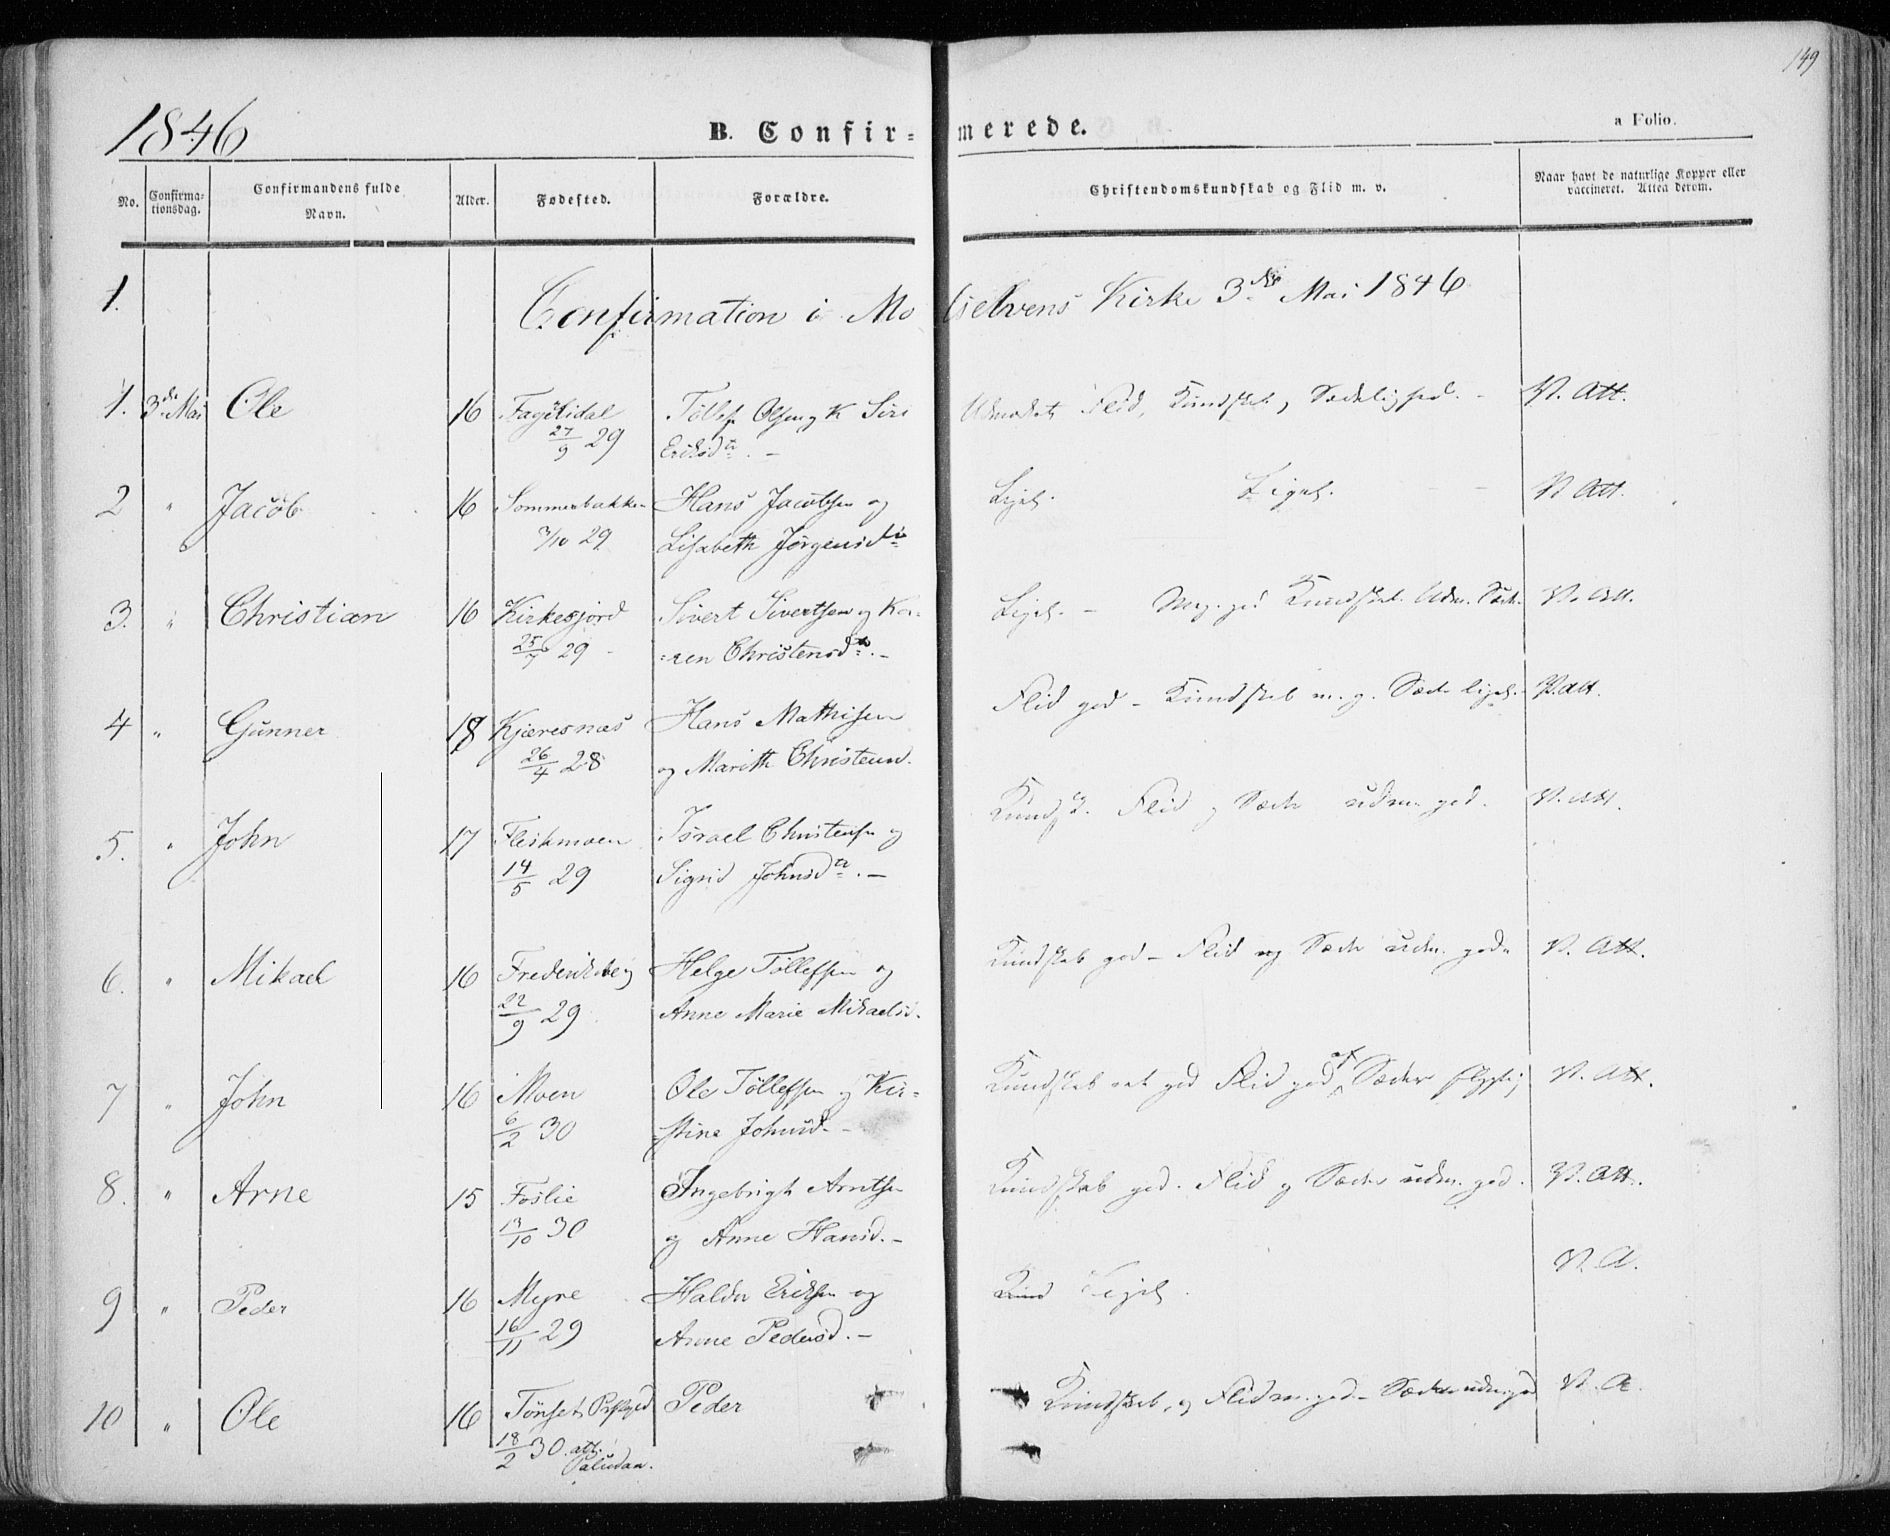 149
1846
B. Confir=merede.
a Folio.
No.
Confirma-
tionsdag.
Confirmandens fulde
Navn.
Alder.
Fødested.
Forældre.
Christendomskundskab og Flid m. v.
Naar havt de naturlige Kopper eller
vaccineret. Attest derom.
1.
Confirmation i Molselvens Kirke 3die Mai 1846
1. 3de Mai Ole 16 Fagelidal Tollef Olsen og K Siri Udmærket Flid, Kundskab, Sædelighed. - V. Att.
27/9 29 Eriksdtr. -
2 " Jacob 16 Sommerbakken Hans Jacobsen og Ligel. Ligel. - V Att.
3/10 29 Lisabeth Jørgensdtr
3. " Christian 16 Kirkesjord Sivert Sivertsen og Ka= Ligel. - Meg. god Kundskab. Udm. Sæder V. Att.
25/7 29 - =ren Christensdtr. -
4 " Gunner 18 Kjæresnæs Hans Mathisen Flid god - Kundskab m. g. Sæder ligel. - V. Att.
26/4 28 og Marith Christensd.
5. " John 17 Fleskmoen Israel Christensen og Kundsk. Flid og Sæder udm. god. V. Att.
14/5 29 Sigrid Johnsdtr. -
6. " Mikael 16 Frederiksberg Helge Tollefsen og Kundskab god - Flid og Sæder udm. gode V. Att.
22/9 29 Anne Marie Mikaelsd.
7 " John 16 Moen Ole Tollefsen og Kir= Kundskab god Flid god Sæder V. Att.
6/2 30 =stine Johnsd. -
8. " Arne 15 Foslie Ingebrigt Arntsen Kundskab god. Flid og Sæder udm. god. V. Att.
13/10 30 og Anne Hansd. -
9 " Peder 16 Myre Haldor Eriksen og Kund Ligel. V. A.
16/11 29 Anne Pedersd. -
10 " Ole 16 Tønset Prstgjed Peder Kundskab, og Flid m. god - Sæder udm. god V. A.
18/2 30. att. Paludan.